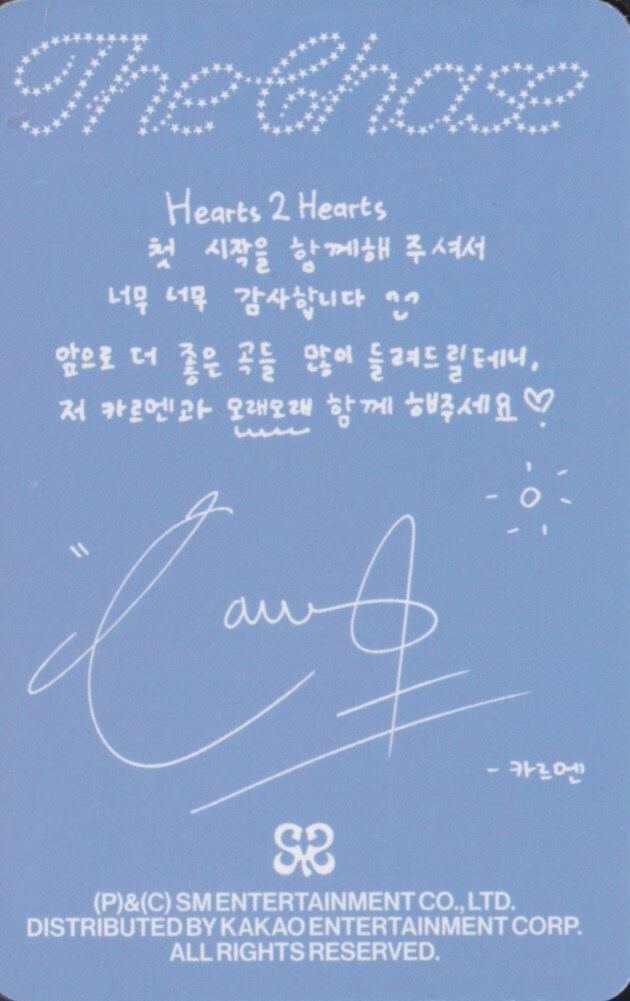 The Chase
Hearts 2 Hearts
첫 시작을 함께해 주셔서
너무 너무 감사합니다
앞으로 더 좋은 곡들 많이 들려드릴테니,
저 카르멘과 오래오래 함께 해주세요♡
- 카르멘
(P)&(C) SM ENTERTAINMENT CO., LTD.
DISTRIBUTED BY KAKAO ENTERTAINMENT CORP.
ALL RIGHTS RESERVED.